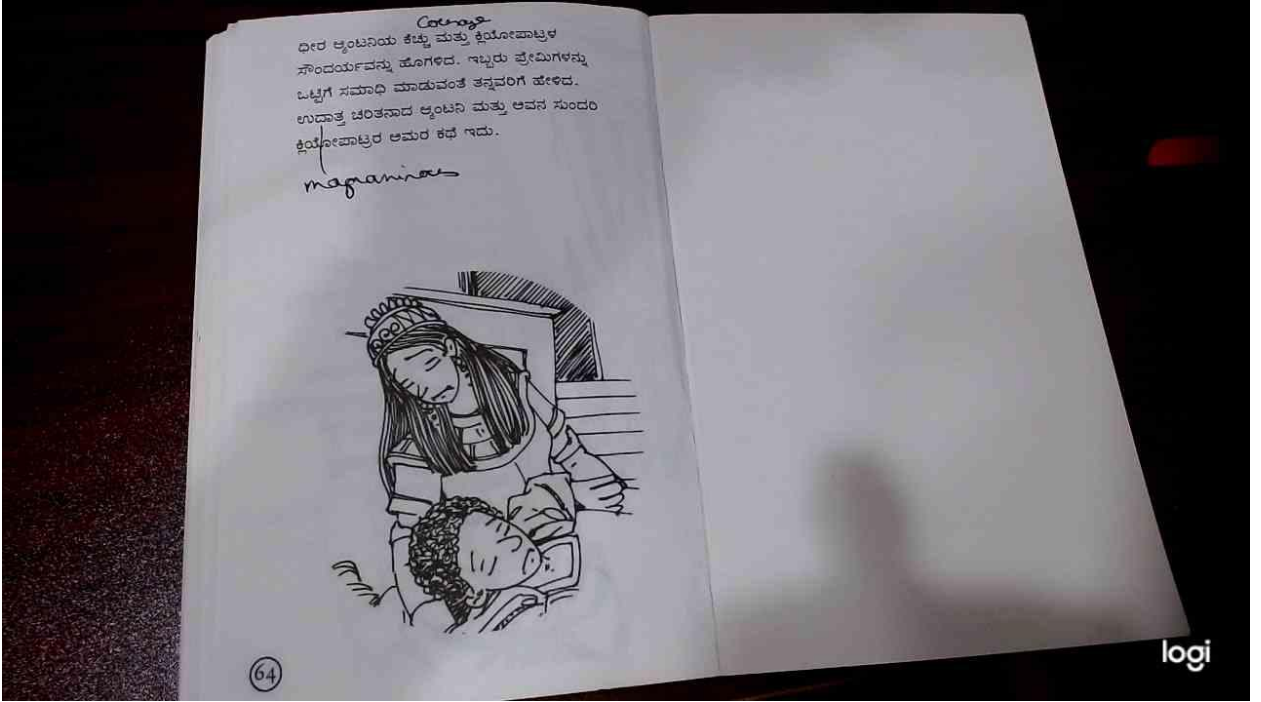 Courage
ಧೀರ ಆ್ಯಂಟನಿಯ ಕೆಚ್ಚು ಮತ್ತು ಕ್ಲಿಯೋಪಾಟ್ರಳ
ಸೌಂದರ್ಯವನ್ನು ಹೊಗಳಿದ. ಇಬ್ಬರು ಪ್ರೇಮಿಗಳನ್ನು
ಒಟ್ಟಿಗೆ ಸಮಾಧಿ ಮಾಡುವಂತೆ ತನ್ನವರಿಗೆ ಹೇಳಿದ.
ಉದಾತ್ತ ಚರಿತನಾದ ಆ್ಯಂಟನಿ ಮತ್ತು ಅವನ ಸುಂದರಿ
ಕ್ಲಿಯೋಪಾಟ್ರರ ಅಮರ ಕಥೆ ಇದು.
64
logi